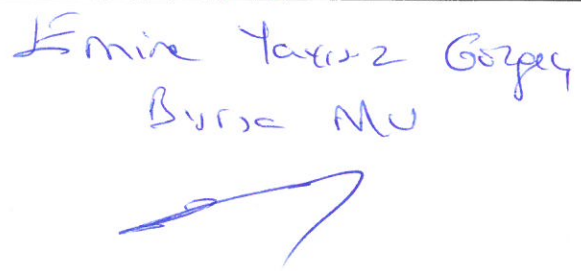 Emine Yavuz Gözgeç
Bursa MV